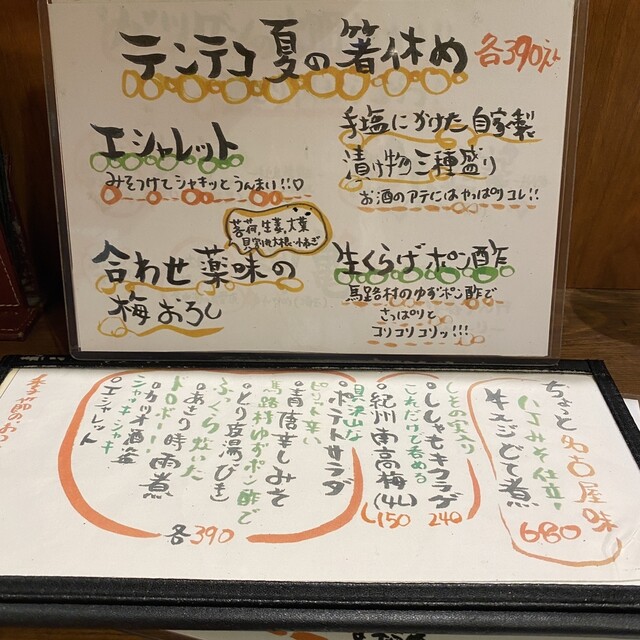 テンテコ 夏の箸休め 各390えん
エシャレット
みそつけてシャキッとうんまい!!♡
手塩にかけた自家製
漬け物三種盛り
お酒のアテにはやっぱりコレ!!
合わせ薬味の
梅おろし
茗荷、生姜、大葉
貝割れ大根、ねぎ
生くらげポン酢
馬路村のゆずポン酢で
さっぱりと
コリコリコリッ!!!
ちょっと名古屋味
八丁みそ仕立
牛すじどて煮
680
しその実入り
ししゃもキクラゲ
240
これだけで呑める
紀州南高梅(4L)
150
具沢山な
ポテトサラダ
ピリット辛い
青唐辛しみそ
馬路村ゆずポン酢で
とり皮湯びき
ふっくら炊いた
あさり時雨煮
ドロボー!!
カツオ酒盗
シャッキシャキ
エシャレット
各390